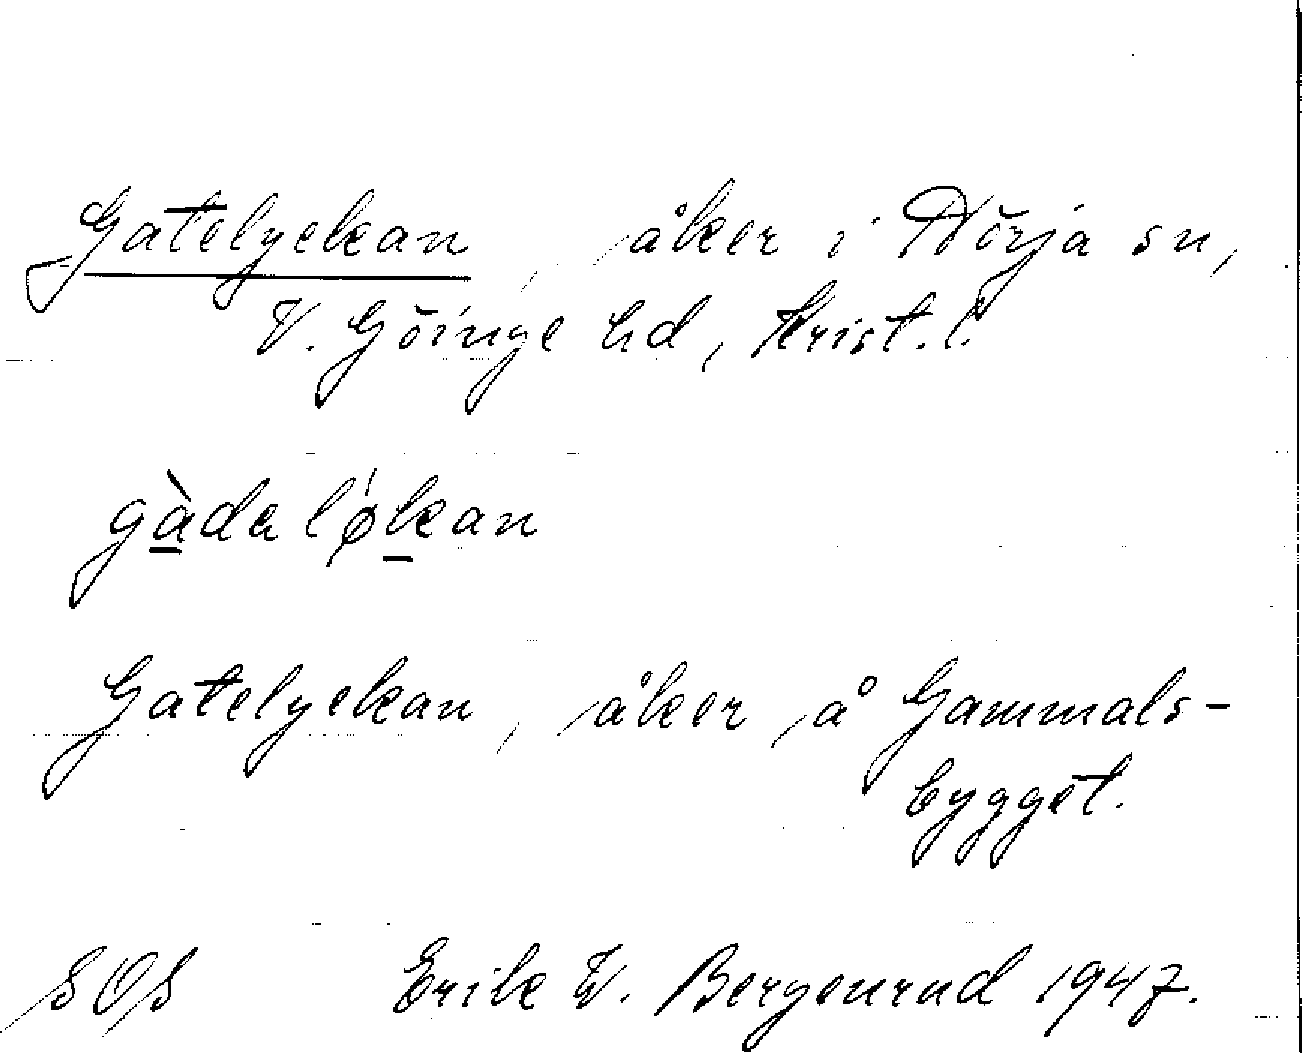 Gatelyckan, åker i Nörja sn,
V. Göinge hd, Krist. l.
gàdalǿkan
Gatelyckan, åker å Gammals-
bygget.
SOS Erik W. Bergenrud 1947.